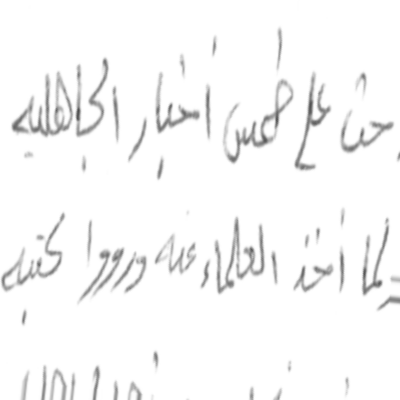 حتى على طمس أخبار الجاهليه
لما أخذ العلماء عنه ورووا كتبه